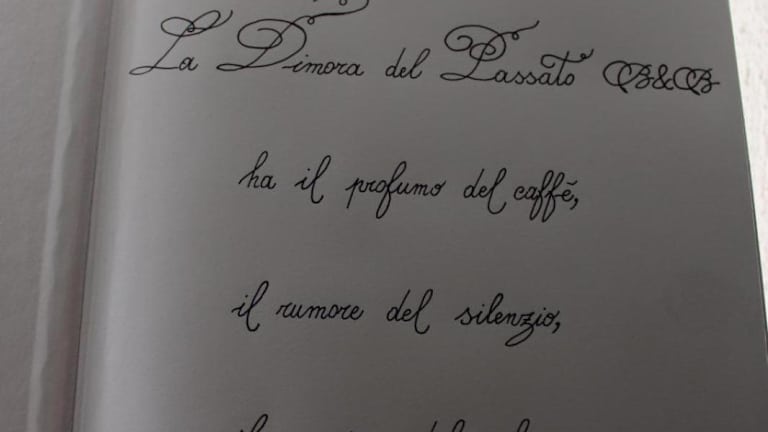 La Dimora del Passato B&B
ha il profumo del caffé,
il rumore del silenzio,